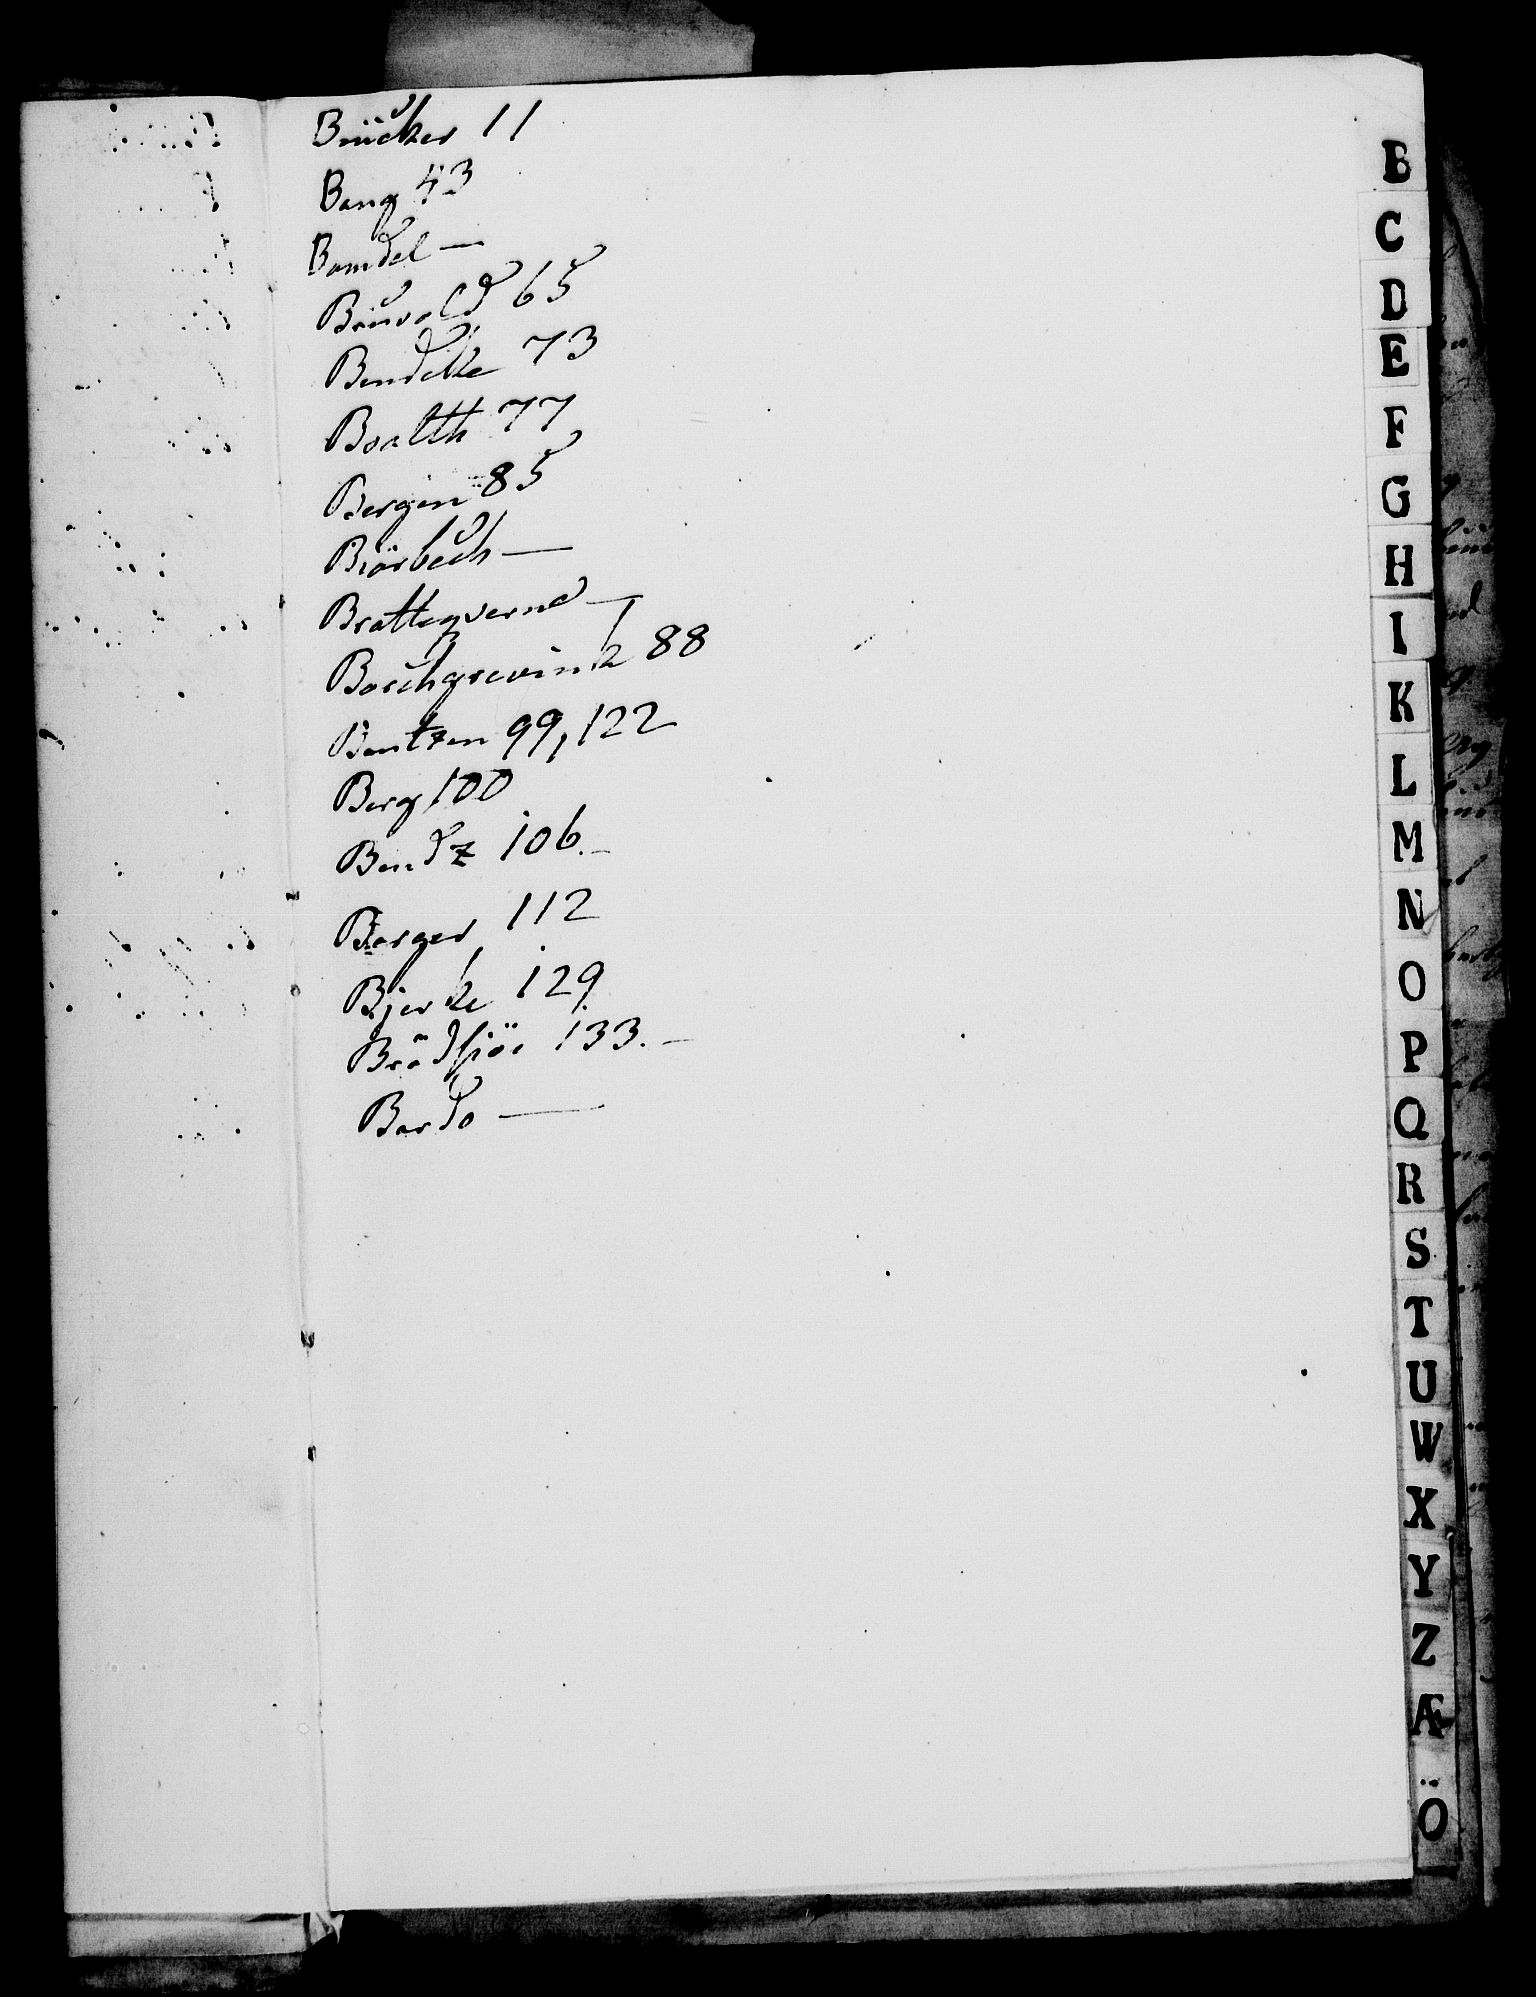 Brücker 11
Bang 43
Bomdel —
Brúvold 65
Bendeke 73
Boalth 77
Bergen 85
Biörbech —
Brattegverne —
Borchgrevink 88
Bentzen 99, 122
Berg 100
Bendz 106. —
Borger 112
Bjerke 129
Brödsjöe 133. —
Bardo —
B
C
D
E
F
G
H
I
K
L
M
N
O
P
Q
R
S
T
U
W
X
Y
Z
Æ
Ö